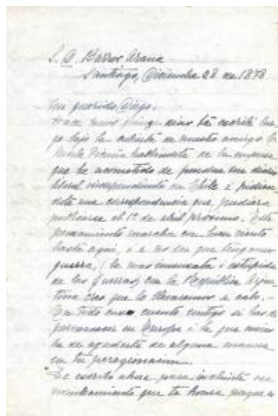 S. D. Barros Arana
Santiago, Diciembre 28 de 1878
Mi querido Diego:
Hace unos quince días te escribí
bajo la cubierta de nuestro amigo
de la empresa
que he acometido de fundar un diario
liberal independiente en Chile i pidien-
dote una correspondencia que pudiera
publicarse el 1º de abril próximo. El
pensamiento marcha con buen viento
hasta aquí, i a no ser que tengamos
guerra, la mas insensata i estúpida
de las guerras, con la República Arjen-
tina creo que lo llevaremos a cabo.
En todo caso cuento contigo si has de
permanecer en Europa i lo que
de ayudarte de alguna manera
en tu peregrinacion.
Te escribo ahora para incluirte
nombramiento que te honra porque